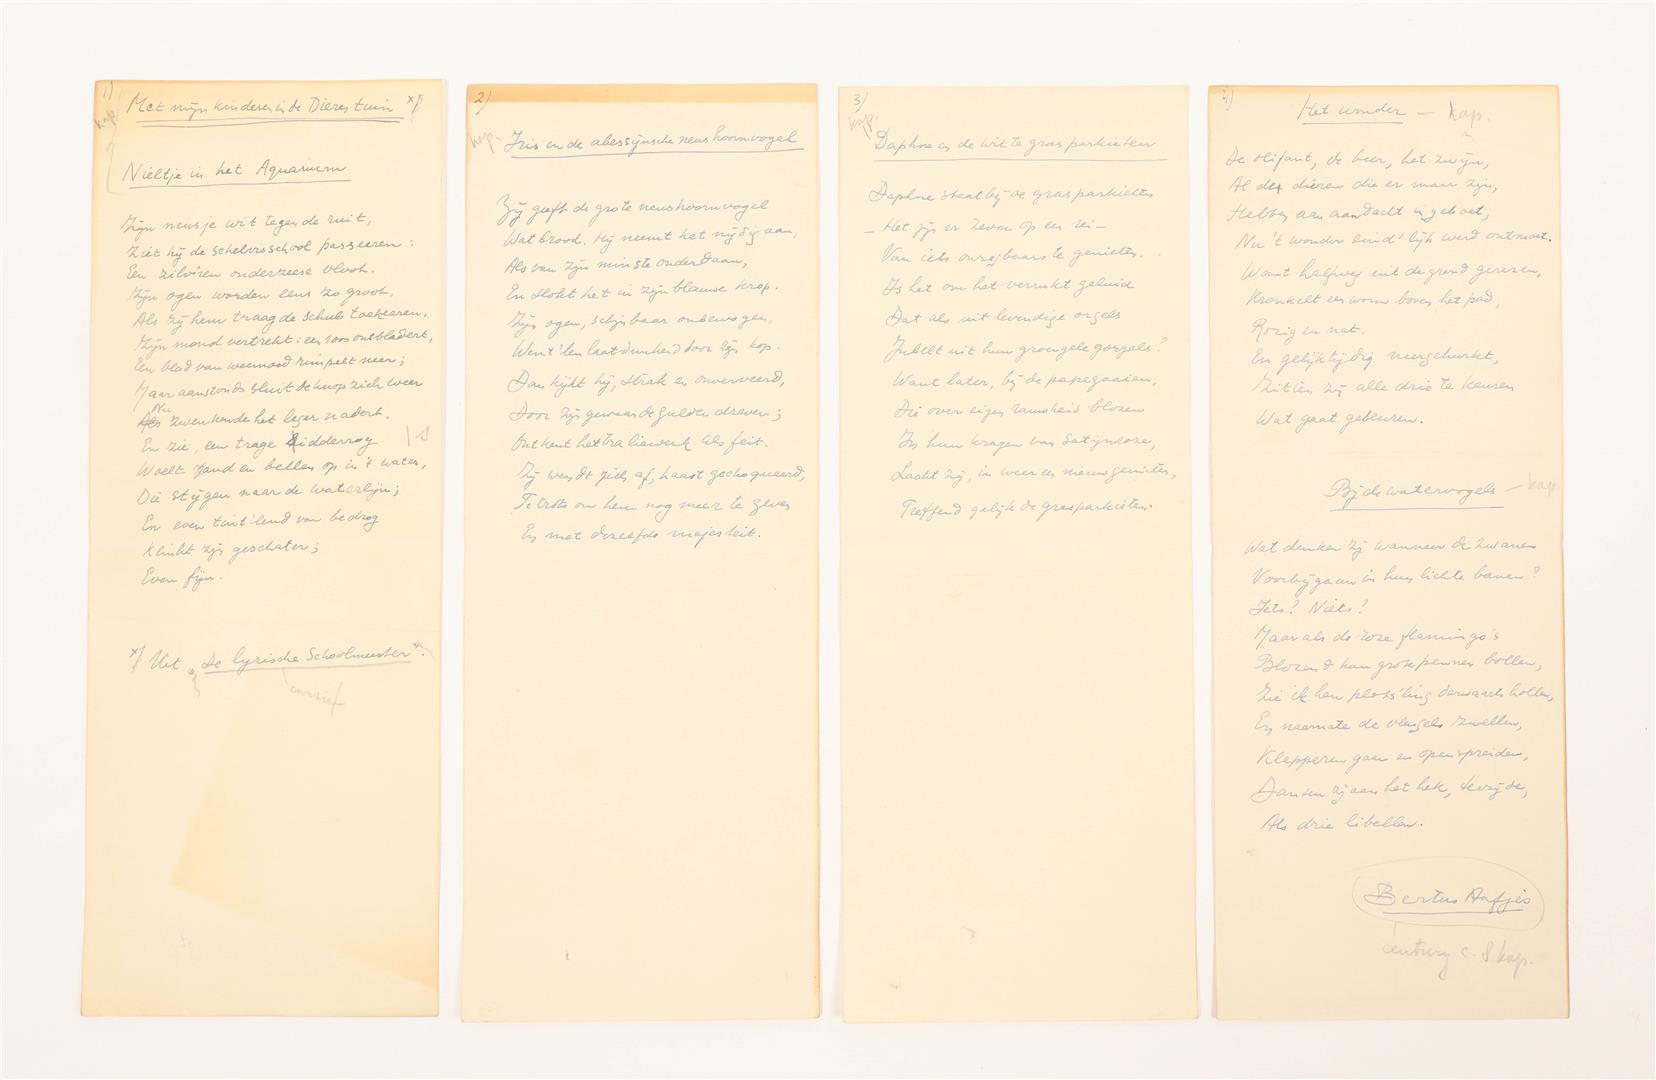 1)
kap.
Met mijn kinderen in de Dierentuin x)
Nieltje in het Aquarium
Zijn neusje wit tegen de ruit,
Ziet hij de schelvisschool passeeren:
Een zilv'ren onderzeese vloot.
Zijn ogen worden eens zo groot,
Als zij hem traag de schub toekeeren.
Zijn mond vertrekt: een roos ontbladert,
Een blad van weemoed rimpelt neer;
Maar aanstonds sluit de knop zich weer
Nu
Als zwenkende het leger nadert.
En zie, een trage sidderrog
Woelt zand en bellen op in 't water,
Die stijgen naar de waterlijn;
En even tint'lend van bedrog
Klinkt zijn geschater;
Even fijn.
x) Uit „De lyrische Schoolmeester".
cursief
2)
kap.
Iris en de abessijnsche neushoornvogel
Zij geeft de grote neushoornvogel
Wat brood. Hij neemt het nijdig aan,
Als van zijn minste onderdaan,
En slokt het in zijn blauwe krop.
Zijn ogen, schijnbaar onbewogen,
Went'len laatdunkend door zijn kop.
Dan kijkt hij, strak en onverveerd,
Door zijn gewaande gulden dreven;
Ontkent het traliewerk als feit.
Zij wendt zich af, haast gechoqueerd,
Te trots om hem nog meer te geven
En met dezelfde majesteit.
3)
kap.
Daphne en de witte grasparkieten
Daphne staat bij de grasparkieten
– Het zijn er zeven op een rei –
Van iets onzegbaars te genieten.
Is het om het verrukt geluid
Dat als uit levendige orgels
Jubelt uit hun groengele gorgels?
Want later, bij de papegaaien,
Die over eigen rauwheid blozen
In hun kragen van satijnroze,
Lacht zij, in weer een nieuw genieten,
Treffend gelijk de grasparkieten.
Het wonder – kap.
De olifant, de beer, het zwijn,
Al de dieren die er maar zijn,
Hebben aan aandacht ingeboet,
Nu 't wonder eind'lijk werd ontmoet.
Want halfweg uit de grond gerezen,
Kronkelt een worm boven het pad,
Rozig en nat.
En gelijktijdig neergehurkt,
Zitten zij alle drie te keuren
Wat gaat gebeuren.
Bij de watervogels – kap
Wat denken zij wanneer de zwanen
Voorbijgaan in hun lichte banen?
Iets? Niets?
Maar als de roze flamingo's
Blozend hun grote pennen bollen,
Zie ik hen plots'ling derwaarts hollen,
En naarmate de vleugels zwellen,
Klepperen gaan en openspreiden,
Dansen zij aan het hek, terzijde,
Als drie libellen.
Bertus Aafjes
century c. 8 kap.